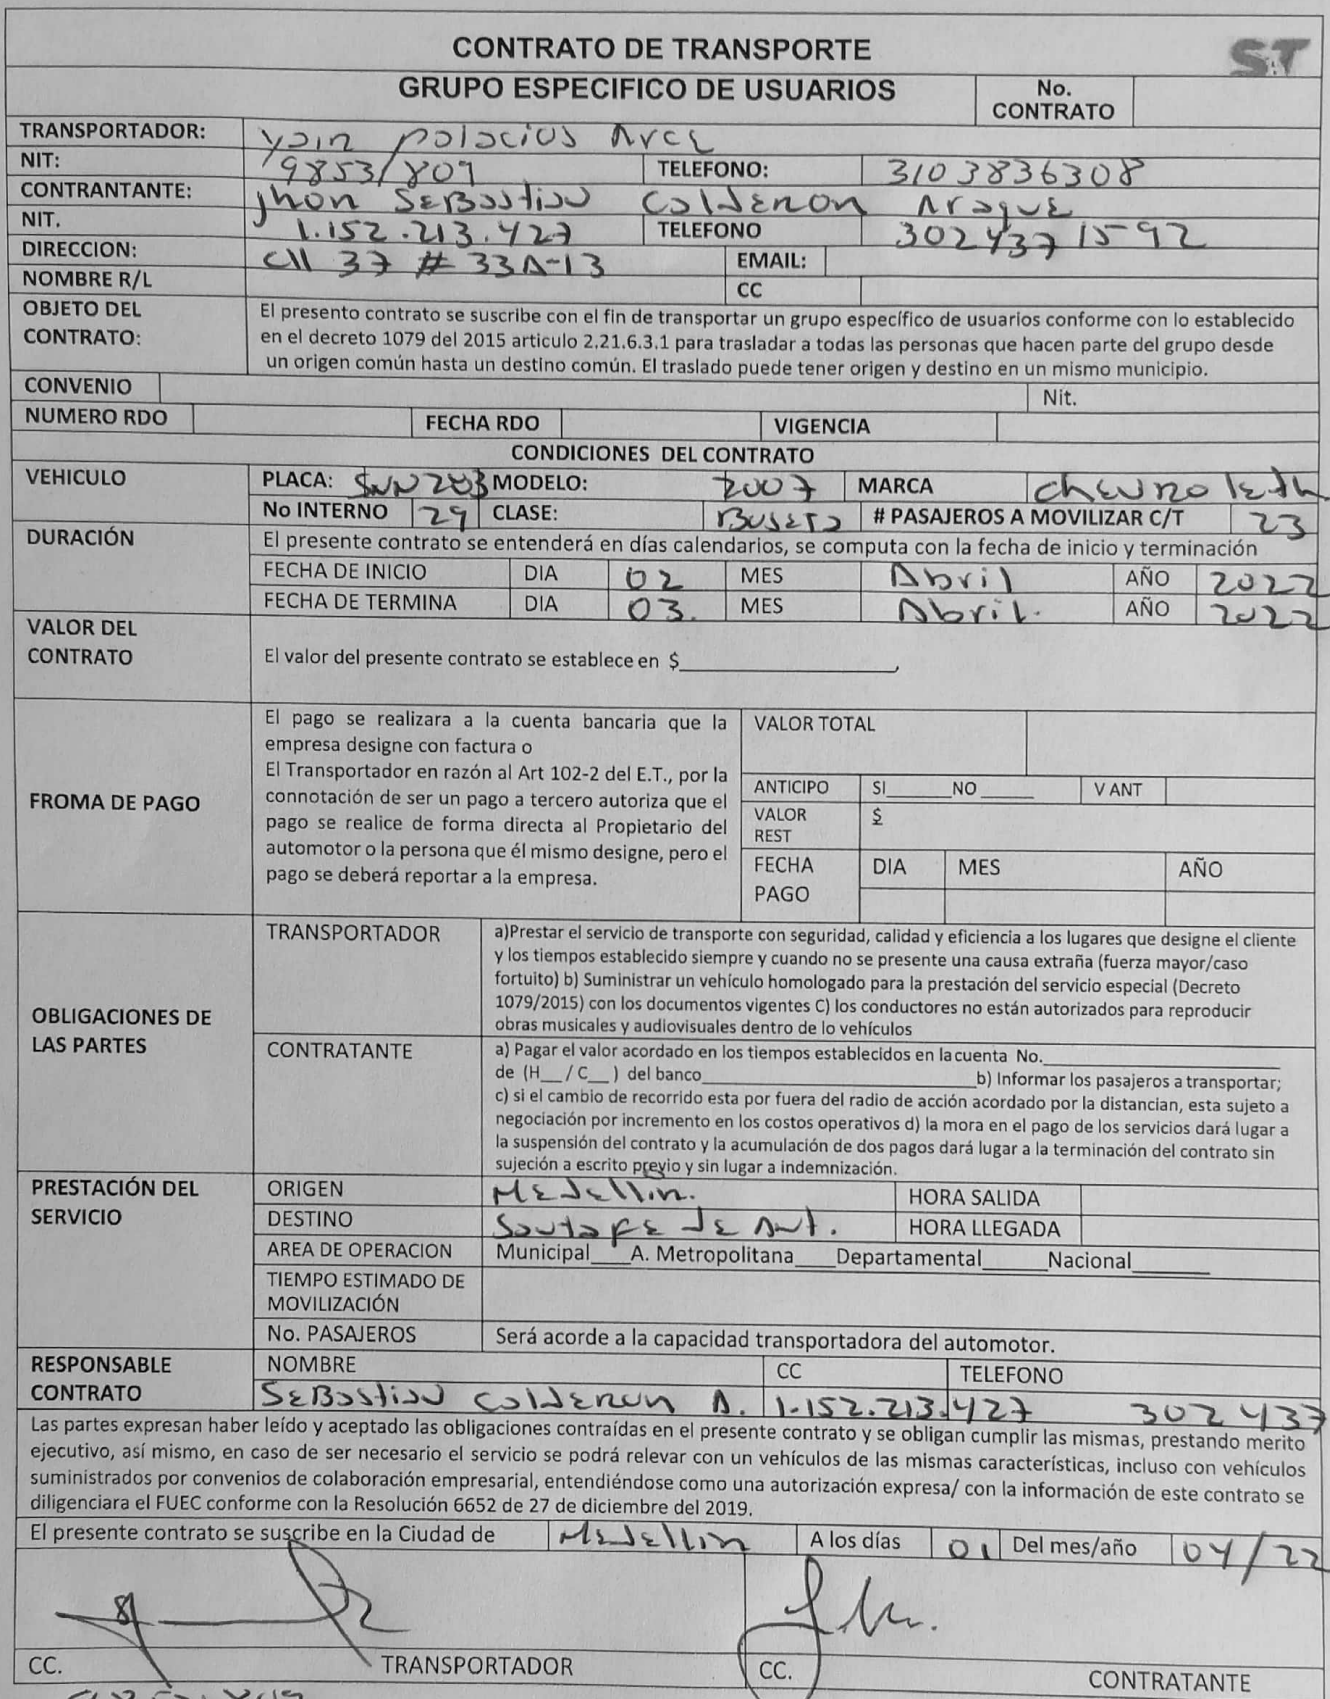 CONTRATO DE TRANSPORTE
SAT
GRUPO ESPECIFICO DE USUARIOS
No. CONTRATO
TRANSPORTADOR: Yain palacius Arce
NIT: 98531809 TELEFONO: 3103836308
CONTRANTANTE: Jhon SEBastian Calderon Araque
NIT. 1.152.213.427 TELEFONO 3024371592
DIRECCION: Cll 37 # 33A-13 EMAIL:
NOMBRE R/L CC
OBJETO DEL CONTRATO:
El presento contrato se suscribe con el fin de transportar un grupo específico de usuarios conforme con lo establecido
en el decreto 1079 del 2015 articulo 2.21.6.3.1 para trasladar a todas las personas que hacen parte del grupo desde
un origen común hasta un destino común. El traslado puede tener origen y destino en un mismo municipio.
CONVENIO Nit.
NUMERO RDO FECHA RDO VIGENCIA
CONDICIONES DEL CONTRATO
VEHICULO PLACA: SNN283 MODELO: 2007 MARCA Chevroleth
No INTERNO 29 CLASE: Buseta # PASAJEROS A MOVILIZAR C/T 23
DURACIÓN El presente contrato se entenderá en días calendarios, se computa con la fecha de inicio y terminación
FECHA DE INICIO DIA 02 MES Abril AÑO 2022
FECHA DE TERMINA DIA 03. MES Abril. AÑO 2022
VALOR DEL CONTRATO
El valor del presente contrato se establece en $
FROMA DE PAGO
El pago se realizara a la cuenta bancaria que la
empresa designe con factura o
El Transportador en razón al Art 102-2 del E.T., por la
connotación de ser un pago a tercero autoriza que el
pago se realice de forma directa al Propietario del
automotor o la persona que él mismo designe, pero el
pago se deberá reportar a la empresa.
VALOR TOTAL
ANTICIPO SI NO V ANT
VALOR REST $
FECHA PAGO DIA MES AÑO
OBLIGACIONES DE LAS PARTES
TRANSPORTADOR
a)Prestar el servicio de transporte con seguridad, calidad y eficiencia a los lugares que designe el cliente
y los tiempos establecido siempre y cuando no se presente una causa extraña (fuerza mayor/caso
fortuito) b) Suministrar un vehículo homologado para la prestación del servicio especial (Decreto
1079/2015) con los documentos vigentes C) los conductores no están autorizados para reproducir
obras musicales y audiovisuales dentro de lo vehículos
CONTRATANTE
a) Pagar el valor acordado en los tiempos establecidos en lacuenta No.
de (H__/C__) del banco b) Informar los pasajeros a transportar;
c) si el cambio de recorrido esta por fuera del radio de acción acordado por la distancian, esta sujeto a
negociación por incremento en los costos operativos d) la mora en el pago de los servicios dará lugar a
la suspensión del contrato y la acumulación de dos pagos dará lugar a la terminación del contrato sin
sujeción a escrito previo y sin lugar a indemnización.
PRESTACIÓN DEL SERVICIO
ORIGEN Medellin. HORA SALIDA
DESTINO Santa fe de Ant. HORA LLEGADA
AREA DE OPERACION Municipal____A. Metropolitana____Departamental______Nacional_______
TIEMPO ESTIMADO DE MOVILIZACIÓN
No. PASAJEROS Será acorde a la capacidad transportadora del automotor.
RESPONSABLE CONTRATO
NOMBRE CC TELEFONO
SEBastian Calderon A. 1.152.213.427 302437
Las partes expresan haber leído y aceptado las obligaciones contraídas en el presente contrato y se obligan cumplir las mismas, prestando merito
ejecutivo, así mismo, en caso de ser necesario el servicio se podrá relevar con un vehículos de las mismas características, incluso con vehículos
suministrados por convenios de colaboración empresarial, entendiéndose como una autorización expresa/ con la información de este contrato se
diligenciara el FUEC conforme con la Resolución 6652 de 27 de diciembre del 2019.
El presente contrato se suscribe en la Ciudad de Medellin A los días 01 Del mes/año 04/22
CC. TRANSPORTADOR
CC. CONTRATANTE